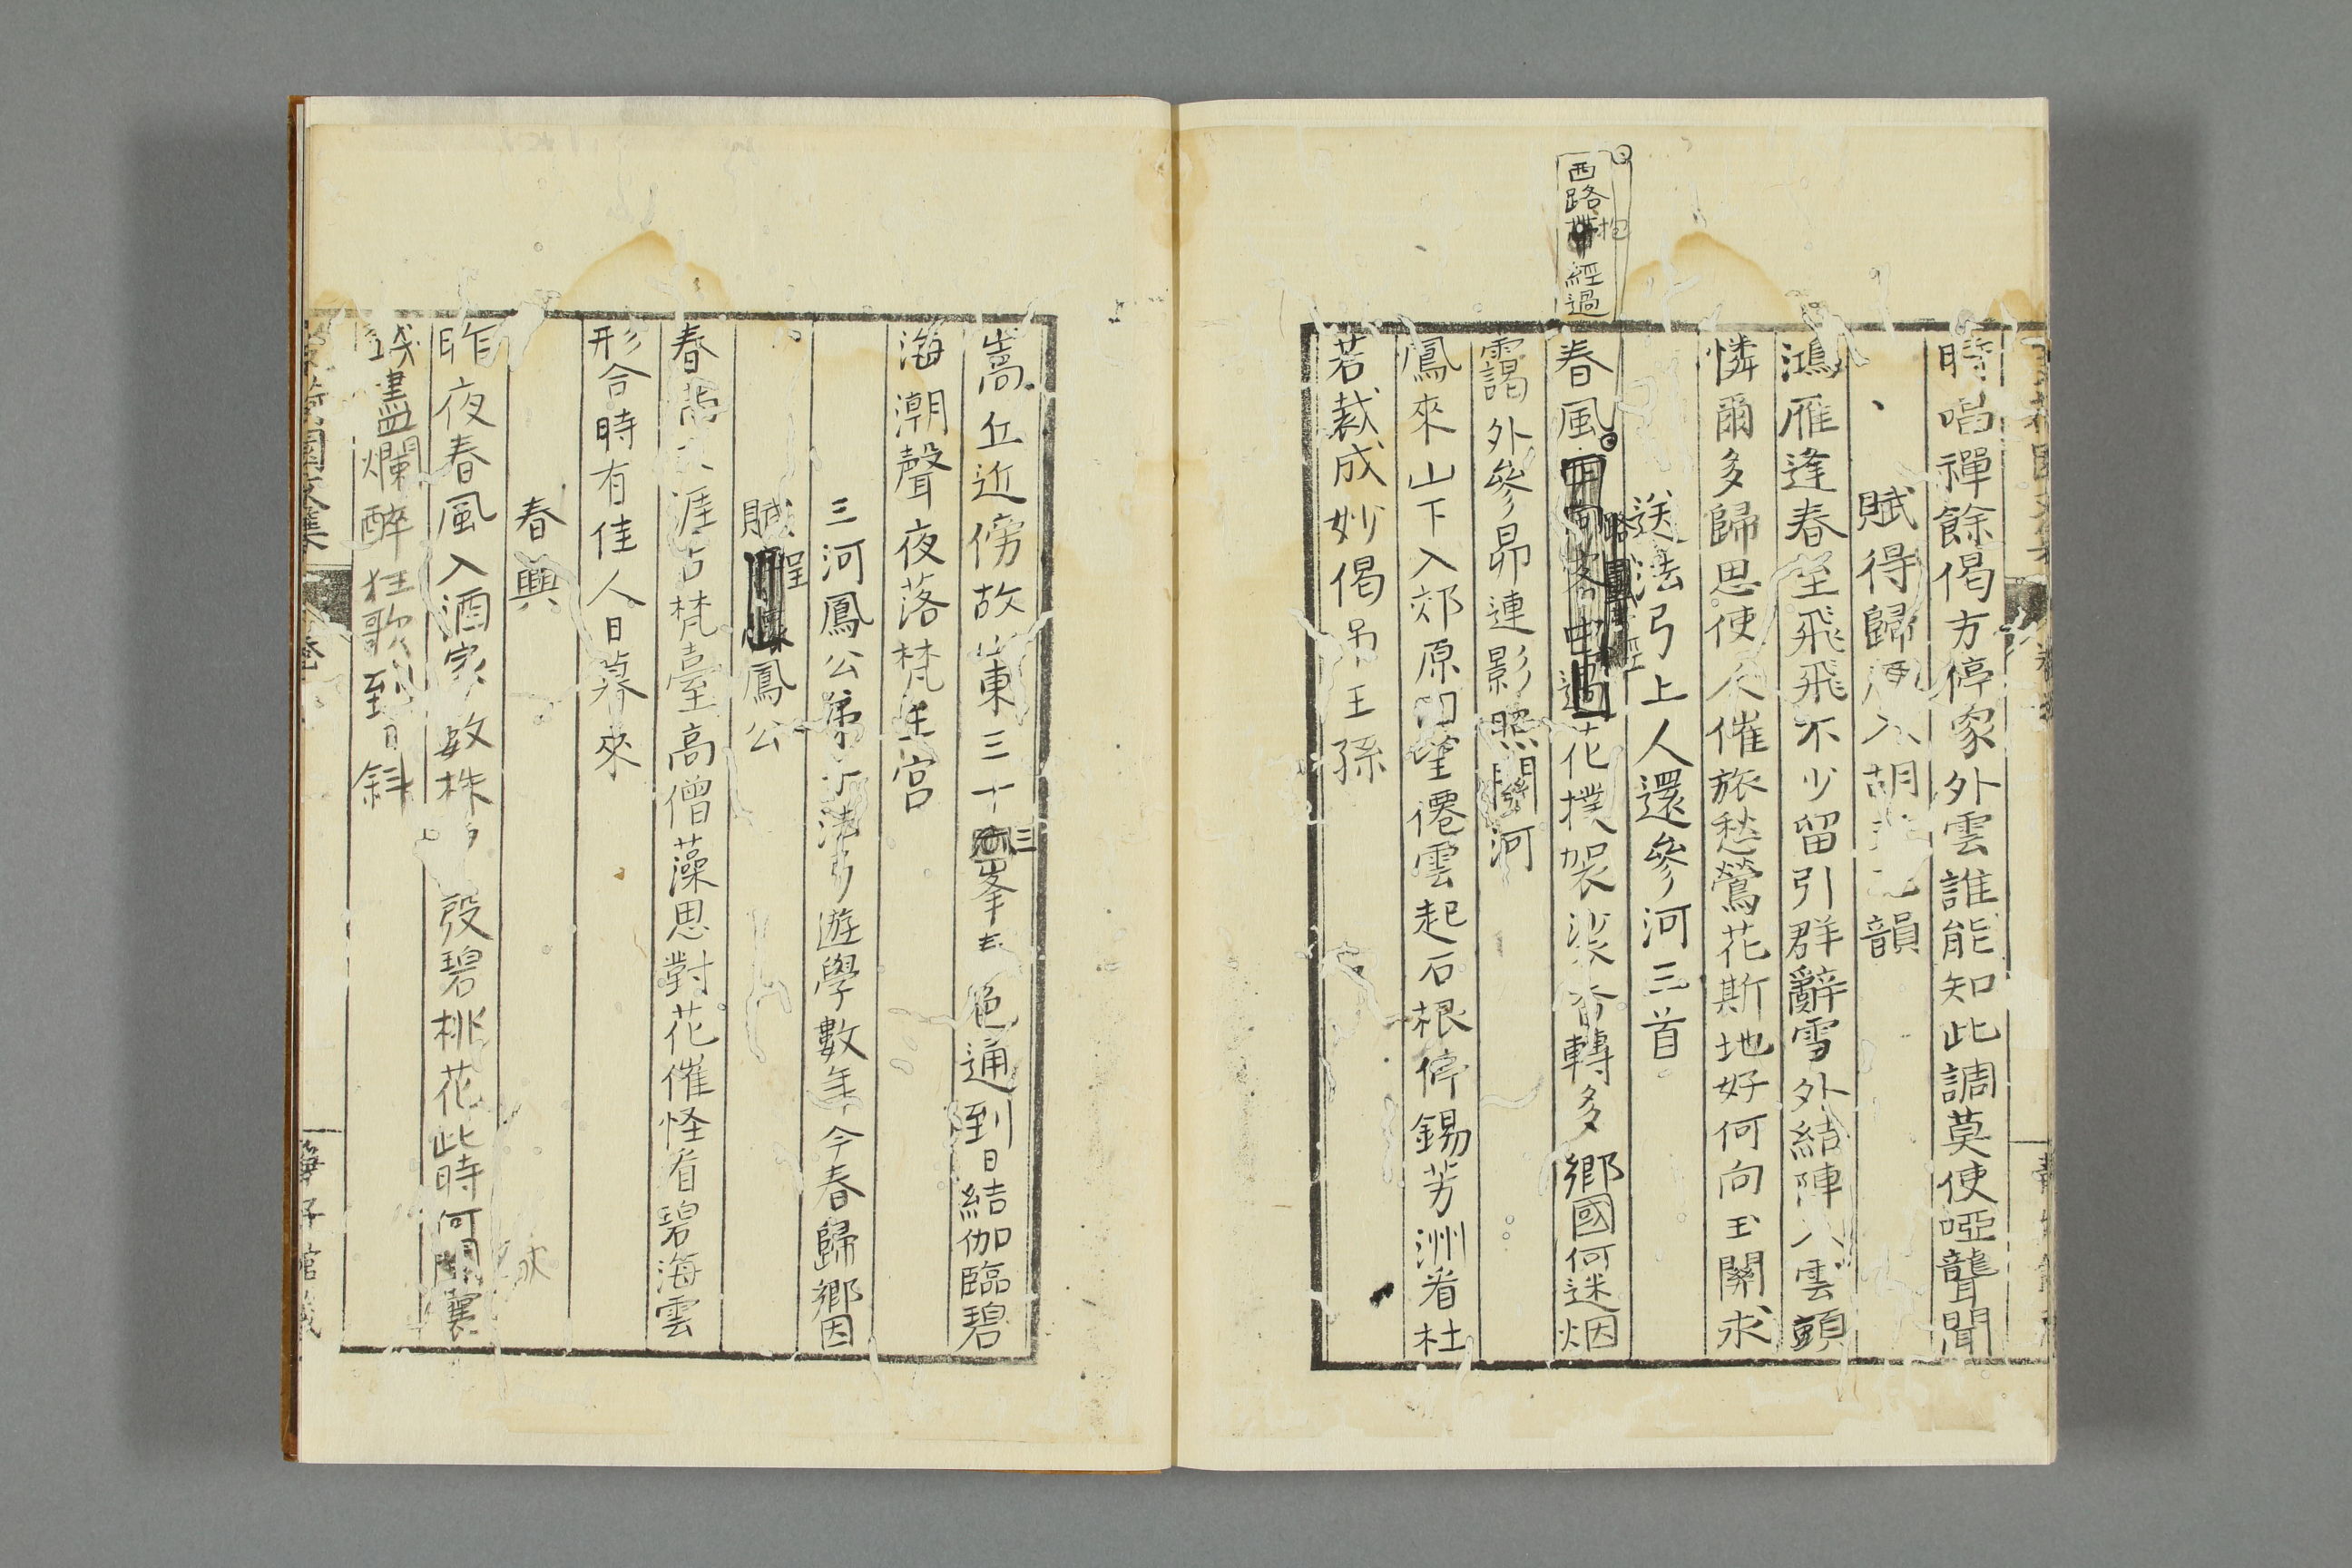 時唱禪餘偈方停象外雲誰能知此調莫使啞聾聞
賦得歸 入胡 韻
鴻雁逢春至飛飛不少留引群辭雪外結陣入雲頭
憐爾多歸思使人催旅愁鶯花斯地好何向玉關求
送法弓上人還參河三首
西路 抱 經過
春風 花撲袈裟香轉多鄉國何迷烟
靄外參昴連影照關河
鳳來山下入郊原 望僊雲起石根停錫芳洲看杜
若裁成妙偈吊王孫
嵩丘近傍故山東三十三峯 色通到日結伽臨碧
海潮聲夜落梵王宮
三河鳳公弟子法弓遊學數年今春歸鄉因
賦呈鳳公
春 涯古梵臺高僧藻思對花催怪看碧海雲
形合時有佳人日暮來
春興
昨夜春風入酒家數株 發碧桃花此時何 
盡爛醉狂歌到日斜
園文集